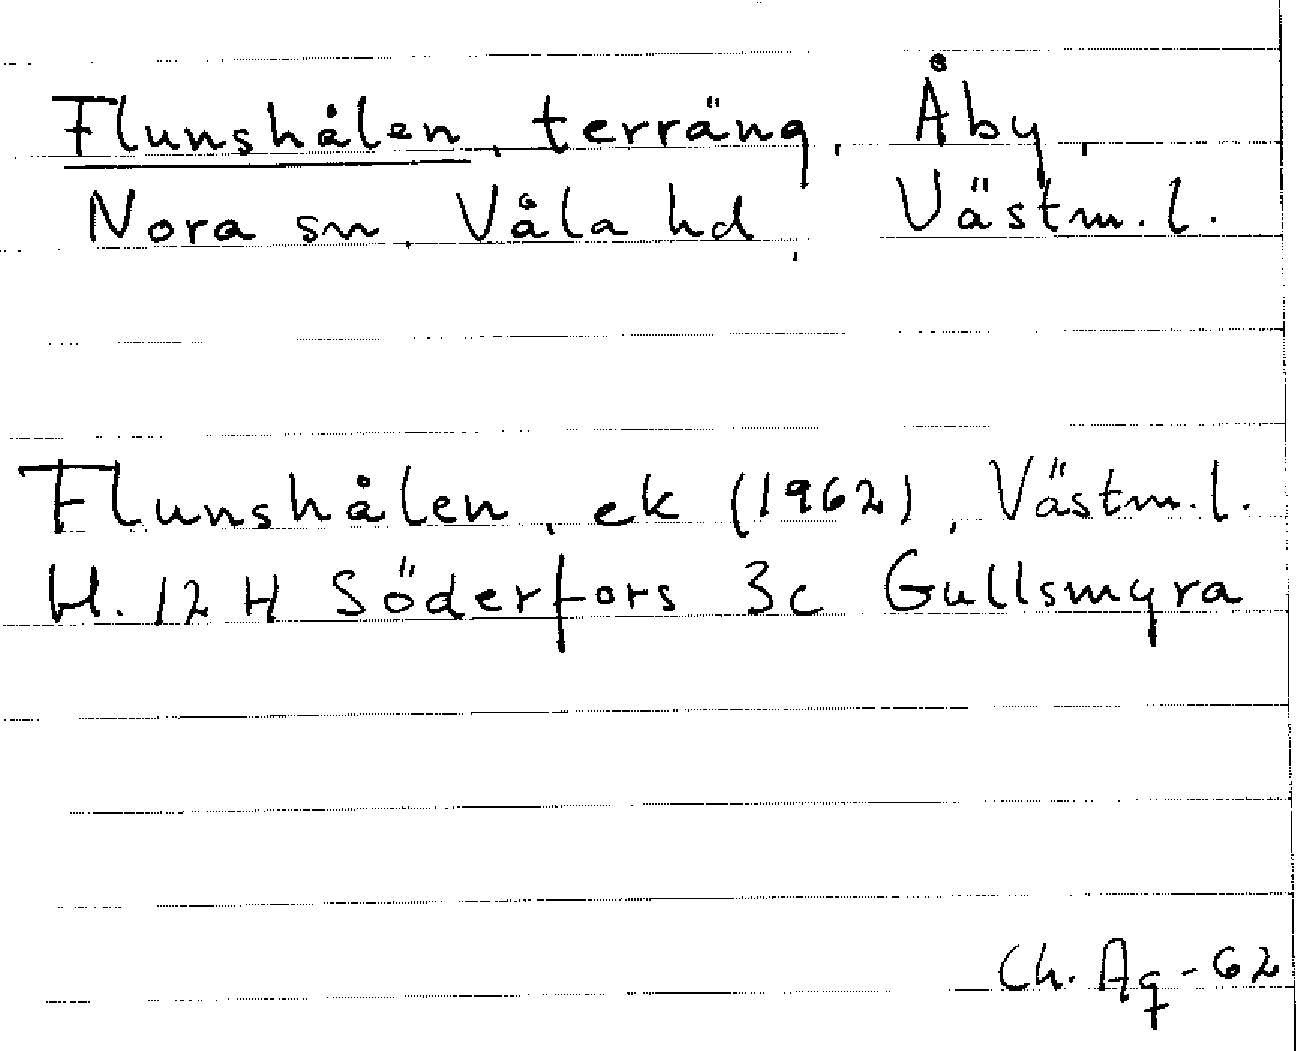 Flunshålen, terräng, Åby,
Nora sn, Våla hd, Västm. l.
Flunshålen, ek (1962), Västm. l.
bl. 12 H Söderfors 3c Gullsmyra
Ch. Aq - 62